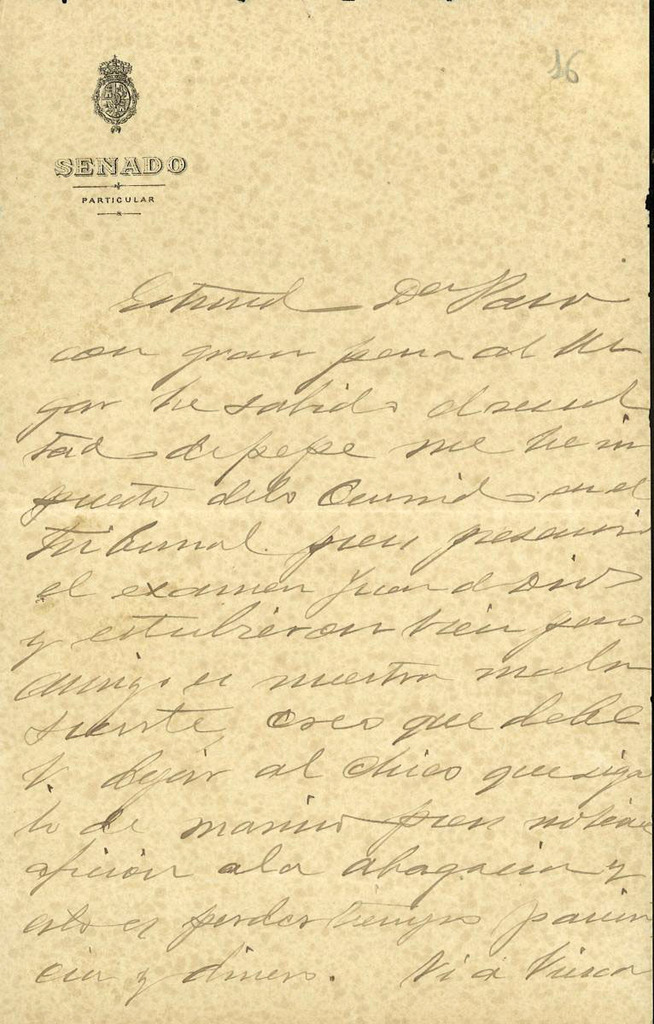 16
SENADO
PARTICULAR
Estimad Dn Paco
con gran pena al lle
gar he sabido el resul
tado de pepe me he in
puesto delo Ocurrido en el
tribunal pues presencio
el examen Juan d Dios
y estubieron bien pero
amigo es nuestra mala
suerte, creo que debe
V. dejar al chico que siga
lo de marino pues no tiene
aficion ala abogacia y
esto es perder tiempo pacien
cia y dinero. Vi a